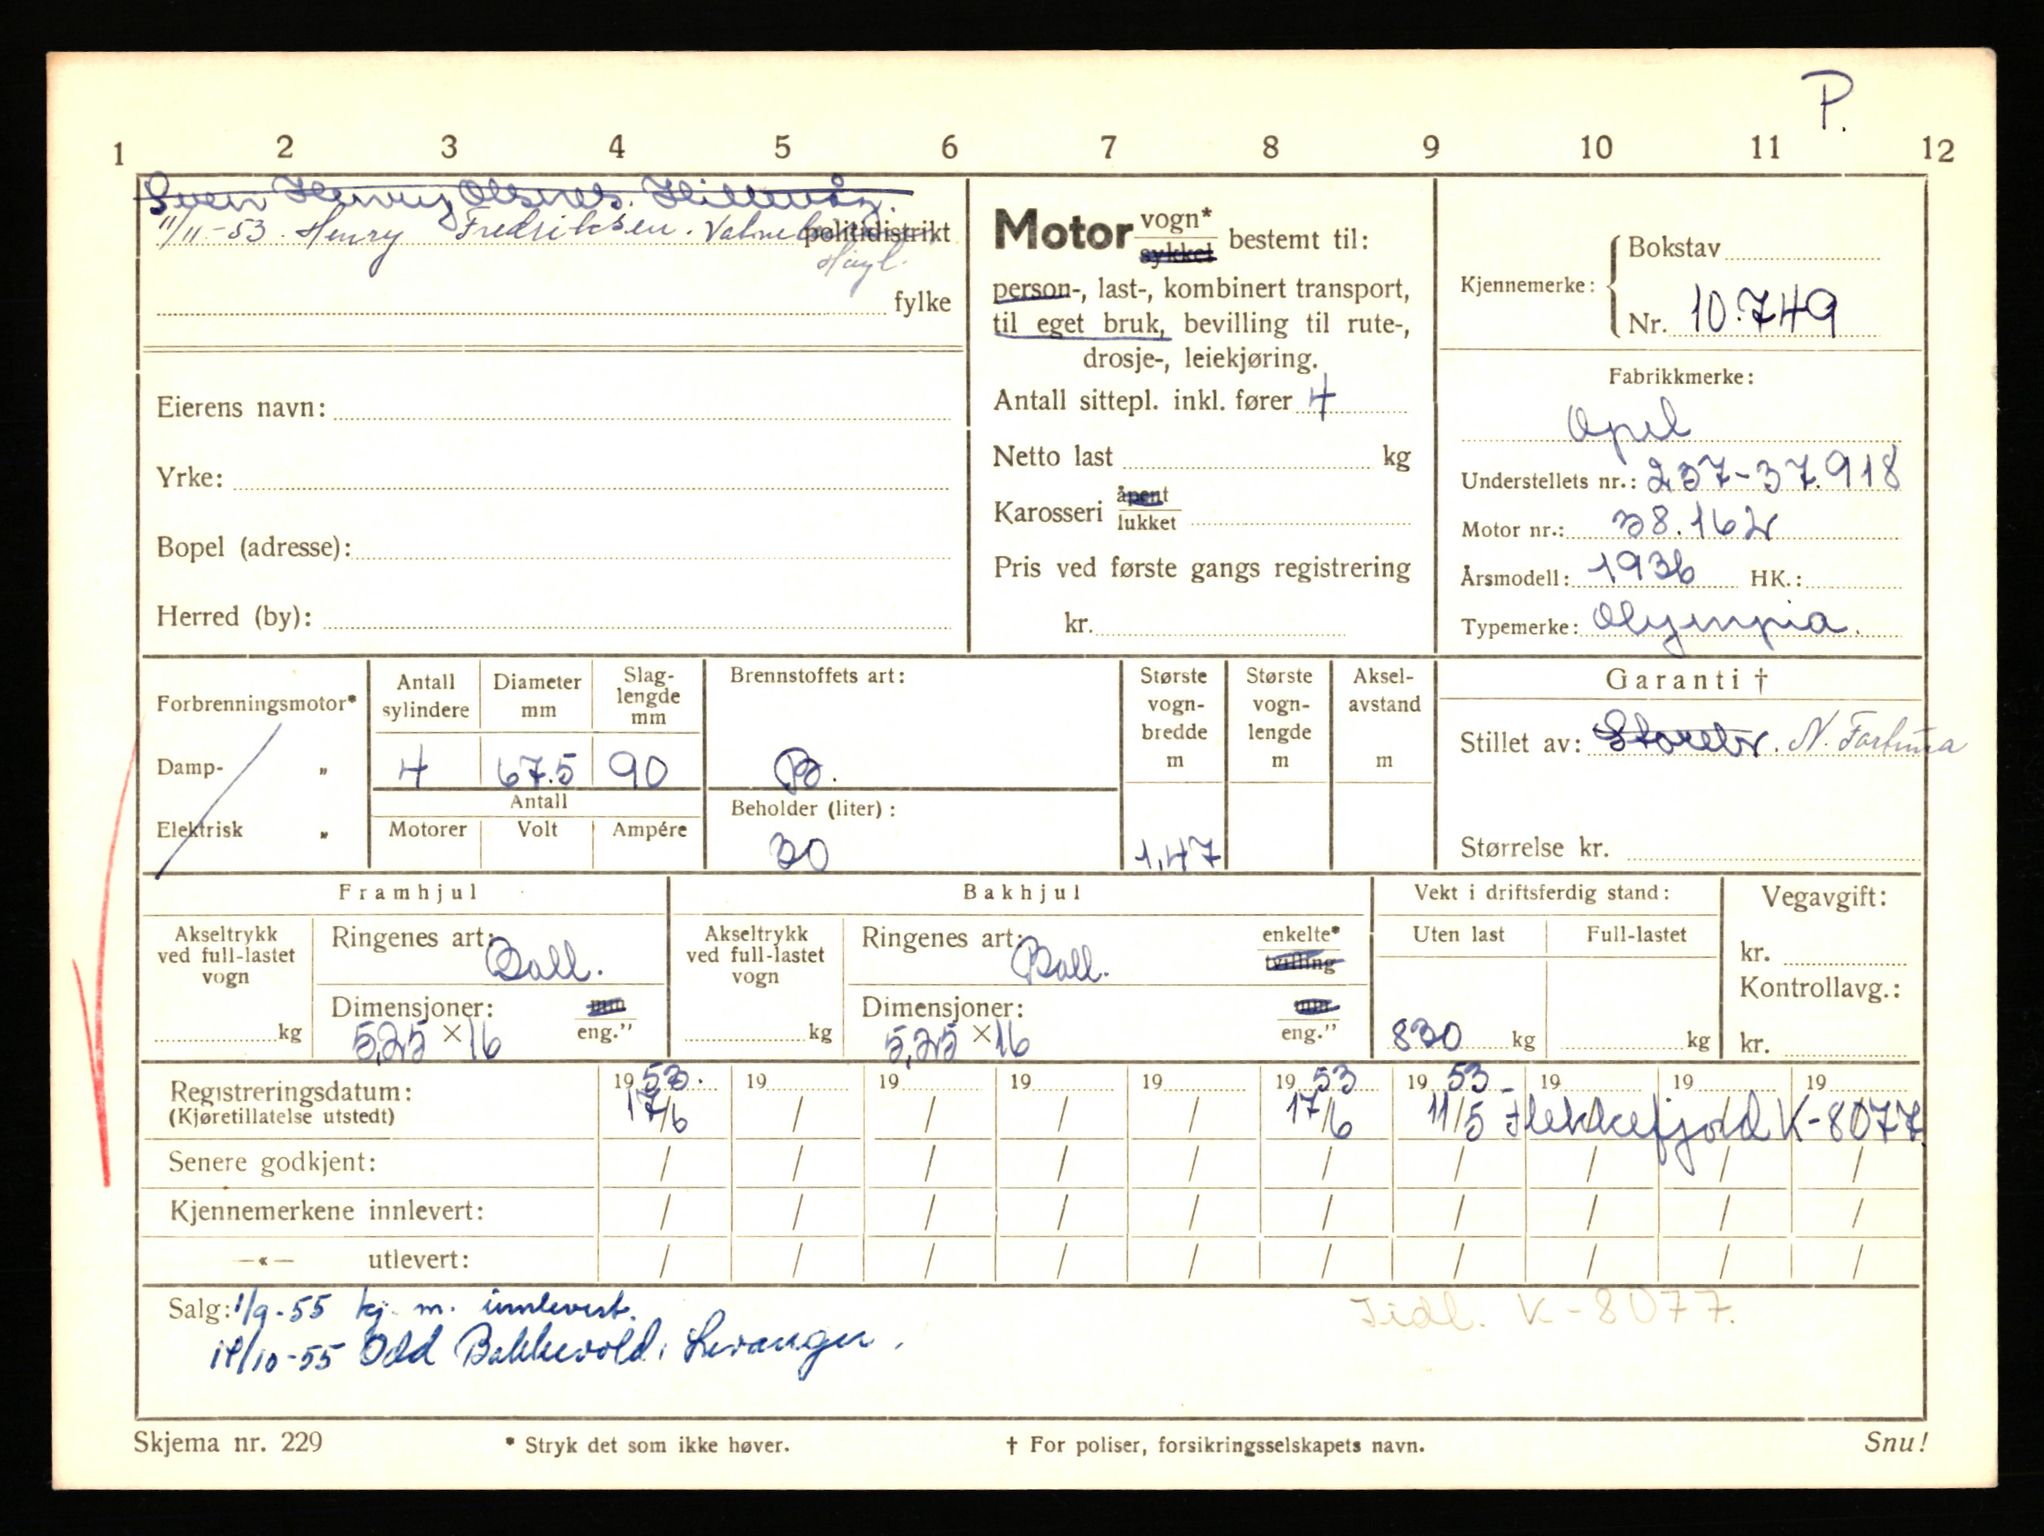 P.
1 2 3 4 5 6 7 8 9 10 11 12
Sven Henry Olsnes. Hillevåg.
11/11-53. Henry Fredriksen. politidistrikt
fylke
Eierens navn:
Yrke:
Bopel (adresse):
Herred (by):
Motor vogn* sykkel bestemt til:
person-, last-, kombinert transport,
til eget bruk, bevilling til rute-,
drosje-, leiekjøring.
Antall sittepl. inkl. fører 4
Netto last kg
Karosseri åpent lukket
Pris ved første gangs registrering
kr.
Kjennemerke: Bokstav
Nr. 10.749
Fabrikkmerke:
Opel
Understellets nr.: 237-37.918
Motor nr.: 38.162
Årsmodell: 1936 HK.:
Typemerke: Olympia.
Forbrenningsmotor*
Damp- „
Elektrisk „
Antall sylindere
4
Diameter mm
67.5
Slaglengde mm
90
Antall
Motorer Volt Ampére
Brennstoffets art:
B.
Beholder (liter):
30
Største vognbredde m
1,47
Største vognlengde m
Akselavstand m
Garanti †
Stillet av: Storebr. N. Fortuna
Størrelse kr.
Framhjul
Akseltrykk ved full-lastet vogn
kg
Ringenes art: Ball.
Dimensjoner: mm
5,25 × 16 eng."
Bakhjul
Akseltrykk ved full-lastet vogn
kg
Ringenes art: Ball. enkelte* tvilling
Dimensjoner: mm
5,25 × 16 eng."
Vekt i driftsferdig stand:
Uten last Full-lastet
830 kg kg
Vegavgift:
kr.
Kontrollavg.:
kr.
Registreringsdatum: 19 53. 19 19 19 19 19 53 19 53 19 19 19
(Kjøretillatelse utstedt) 17/6 / / / / 17/6 11/5 Flekkefjord K-8077.
Senere godkjent: / / / / / / / / / /
Kjennemerkene innlevert: / / / / / / / / / /
—«— utlevert: / / / / / / / / / /
Salg: 1/9-55 kj. m. innlevert. Tidl. K-8077.
14/10-55 Odd Bakkevold, Levanger.
Skjema nr. 229 * Stryk det som ikke høver. † For poliser, forsikringsselskapets navn. Snu!